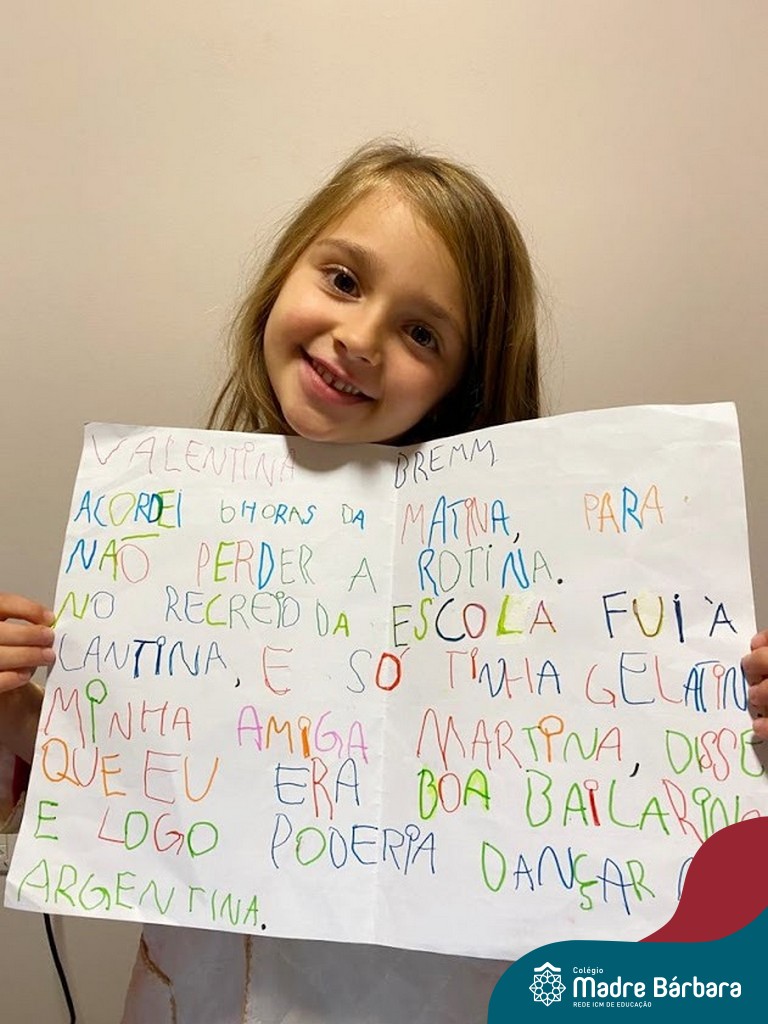 VALENTINA BREMM
ACORDEI 6 HORAS DA MATINA, PARA
NÃO PERDER A ROTINA.
NO RECREIO DA ESCOLA FUI À
CANTINA, E SÓ TINHA GELATIN
MINHA AMIGA MARTINA, DISSE
QUE EU ERA BOA BAILARINA
E LOGO PODERIA DANÇAR
ARGENTINA.
Colégio
Madre Bárbara
REDE ICM DE EDUCAÇÃO